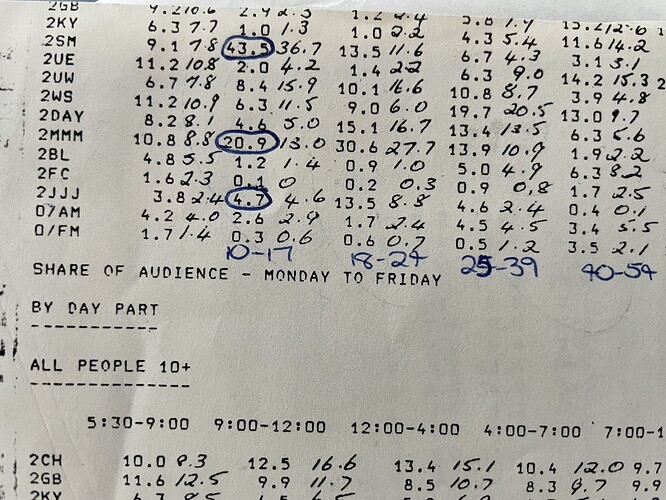 2GB 9.2 10.6 2.9 2.3 1.2 2.4 5.8 1.9 15.2 12.6
2KY 6.3 7.7 1.0 1.3 1.0 2.2 4.3 5.4 11.6 14.2
2SM 9.1 7.8 43.5 36.7 13.5 11.6 6.7 4.3 3.1 3.1
2UE 11.2 10.8 2.0 4.2 1.4 2.2 6.3 9.0 14.2 15.3 2
2UW 6.7 7.8 8.4 15.9 10.1 16.6 10.8 8.7 3.9 4.8
2WS 11.2 10.9 6.3 11.5 9.0 6.0 19.7 20.5 13.0 9.7
2DAY 8.2 8.1 4.6 5.0 15.1 16.7 13.4 13.5 6.3 5.6
2MMM 10.8 8.8 20.9 13.0 30.6 27.7 13.9 10.9 1.9 2.2
2BL 4.8 5.5 1.2 1.4 0.9 1.0 5.0 4.9 6.3 8.2
2FC 1.6 2.3 0.1 0 0.2 0.3 0.9 0.8 1.7 2.5
2JJJ 3.8 2.4 4.7 4.6 13.5 8.8 4.6 2.4 0.4 0.1
O/AM 4.2 4.0 2.6 2.9 1.7 2.4 4.5 4.5 3.4 5.5
O/FM 1.7 1.4 0.3 0.6 0.6 0.7 0.5 1.2 3.5 2.1
10-17 18-24 25-39 40-54
SHARE OF AUDIENCE - MONDAY TO FRIDAY
BY DAY PART
ALL PEOPLE 10+
5:30-9:00 9:00-12:00 12:00-4:00 4:00-7:00 7:00-1
2CH 10.0 8.3 12.5 16.6 13.4 15.1 10.4 12.0 9.7
2GB 11.6 12.5 9.9 11.7 8.5 10.7 8.3 9.7 9.9
2KY